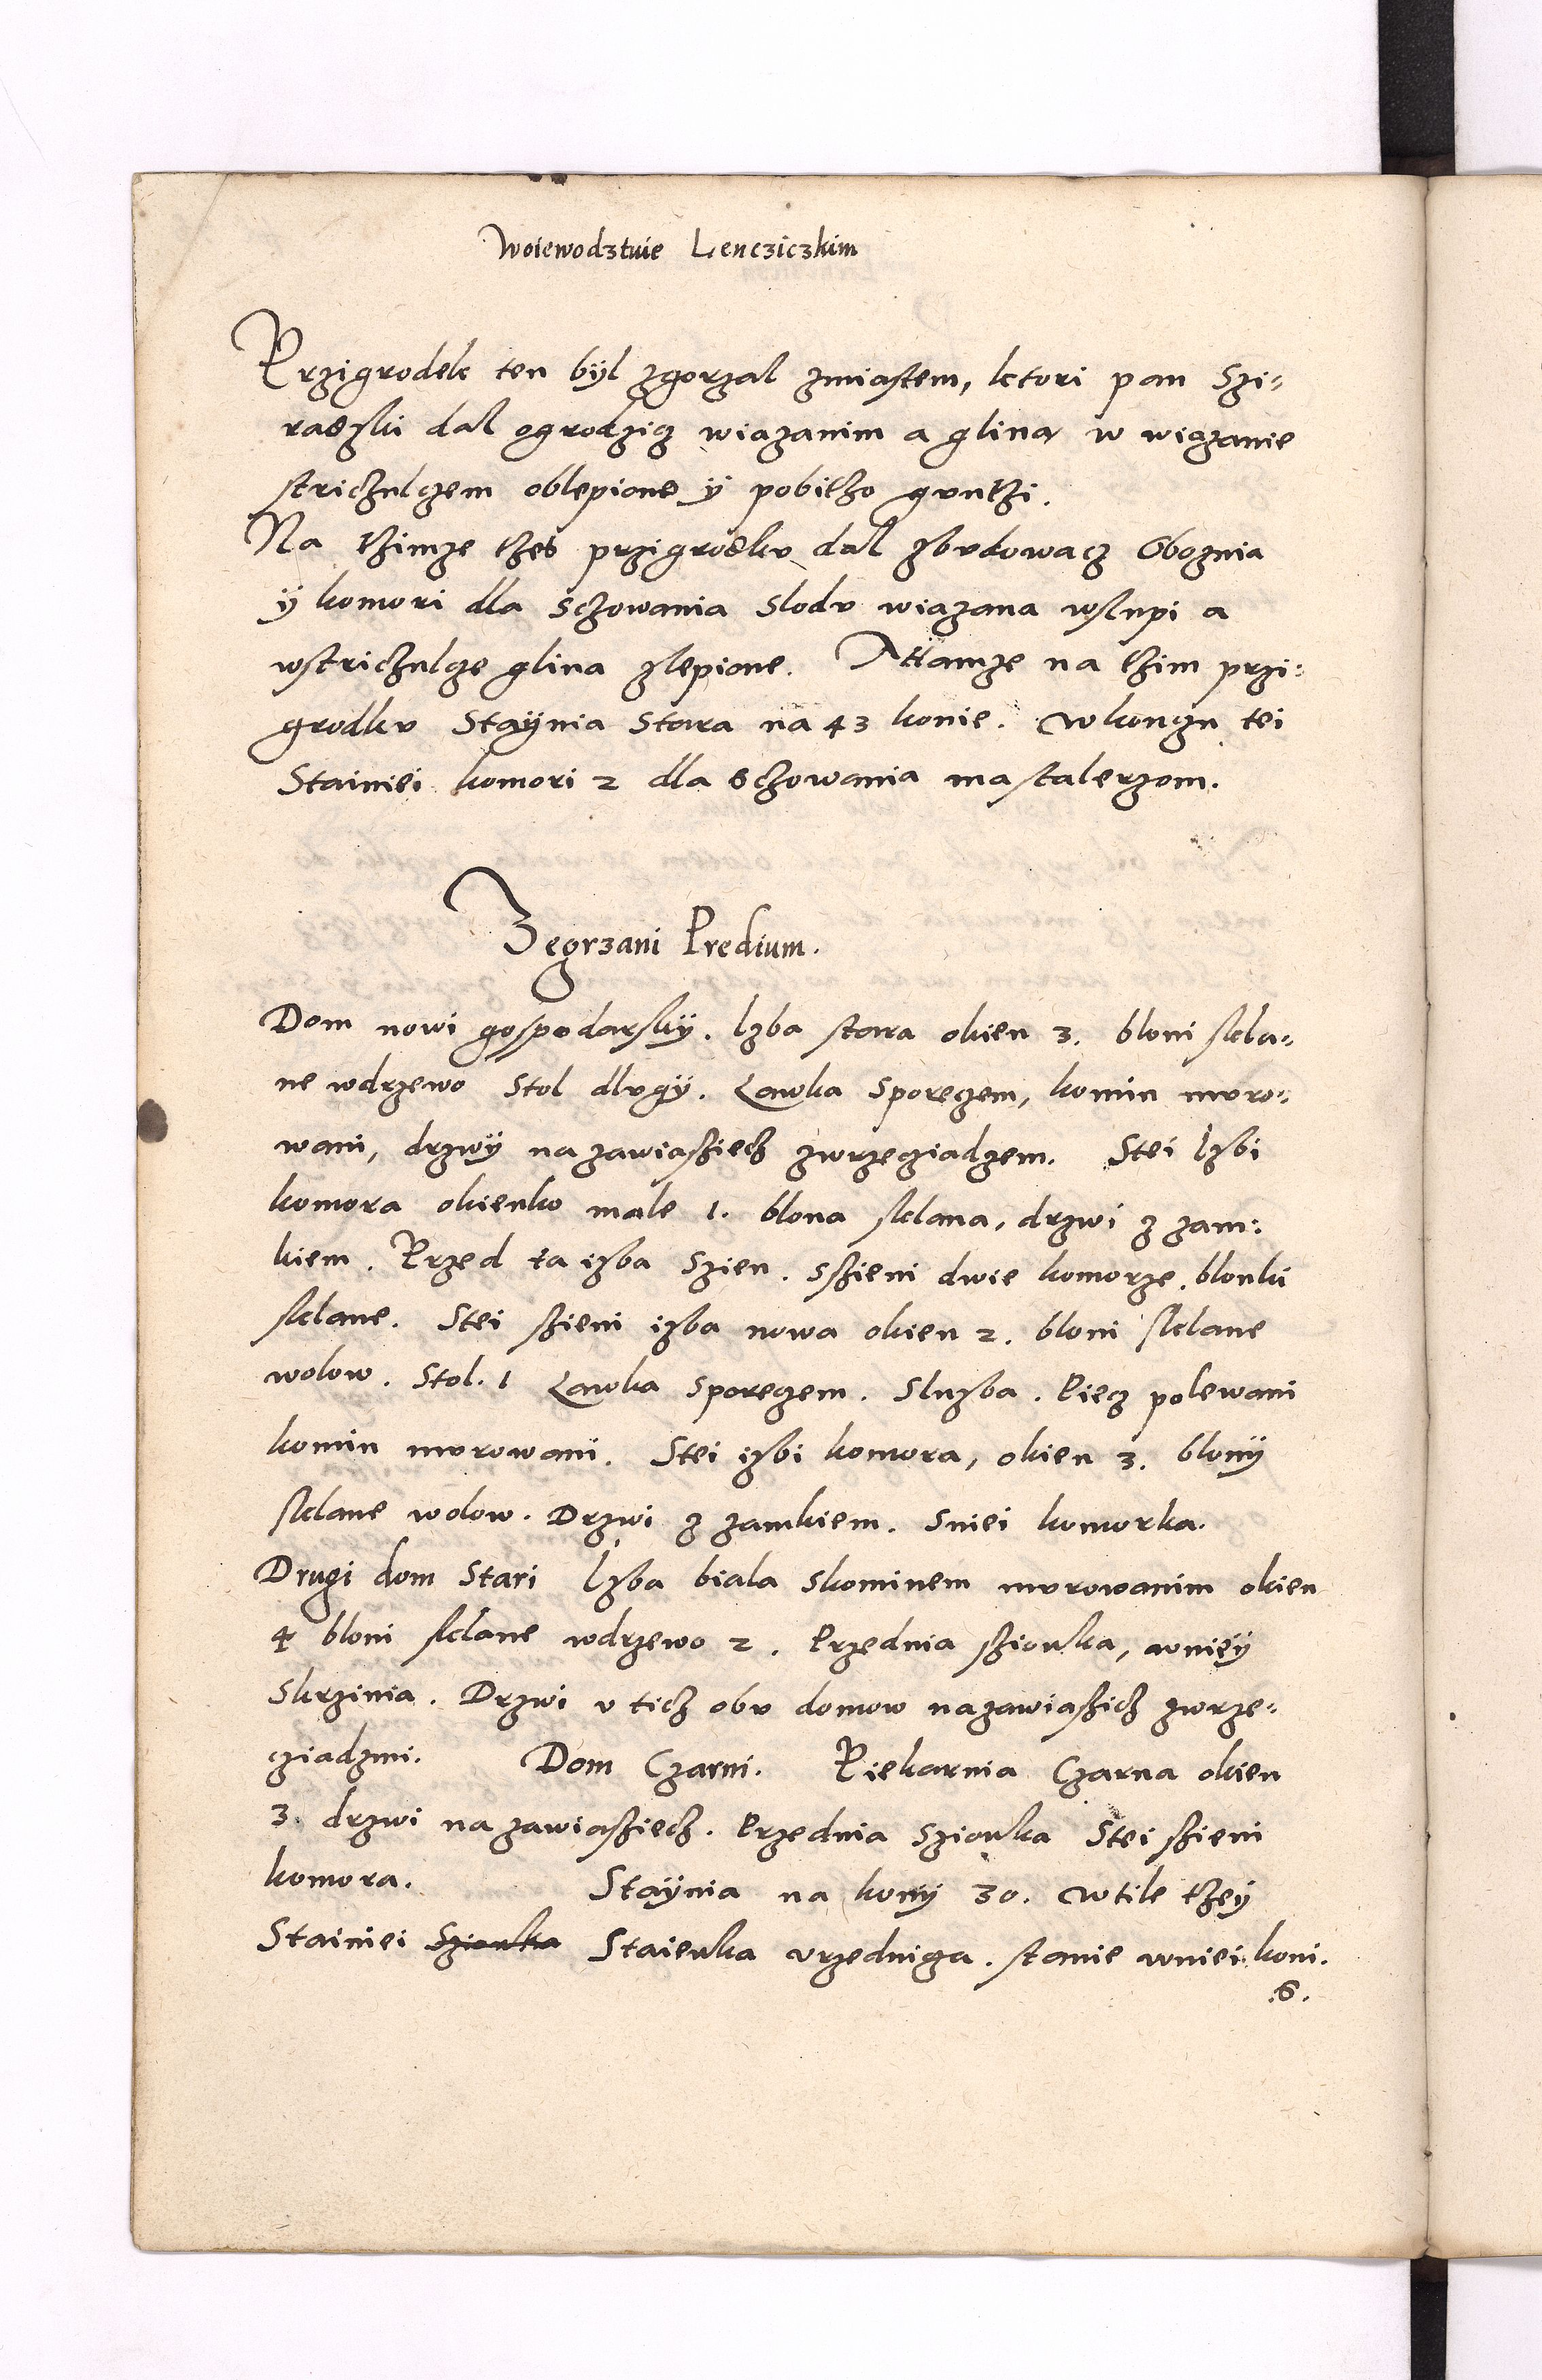 Woiewodztwie Lencziczkim
Przigrodek ten byl zgorzal zmiastem, ktori pan Szi-
radzki dal ogrodzicz wiazanim a glina w wiazanie
strichulczem oblepione ÿ pobitho gonthi.
Na thimze thes przigrodku dal zbudowacz Oboznia
ÿ komori dla schowania Slodu wiazana wslupi a
wstrichulcze glina zlepione. Attamze na thim przi-
grodku Staÿnia Stara na 43 konie. W konczu tei
Stainiei komori 2 dla schowania mastalerzom.
Zegrzani Predium.
Dom nowi gospodarskÿ. Izba stara okien 3. bloni skla-
ne wdrzewo Stol dlugÿ. Lawka Sporeczem, komin muro-
wani, drzwÿ na zawiassiech zwrzecziadzem. Stei Izbi
komora okienko male 1. blona sklana, drzwi z zam-
kiem. Przed ta izba Szien. Sssieni dwie komorze. blonki
sklane. Stei ssieni izba nowa okien 2. bloni sklane
wolow. Stol. 1 Lawka Sporeczem. Sluzba. Piecz polewani
komin murowani. Stei izbi komora, okien 3. blonÿ
sklane wolow. Drzwi z zamkiem. Sniei komorka.
Drugi dom Stari Izba biala Skominem murowanim okien
4 bloni sklane wdrzewo 2. Przednia ssionka, wnieÿ
Skrzinia. Drzwi u tich obu domow na zawiassich zwrze-
cziadzmi. Dom Czarni. Piekarnia Czarna okien
3. drzwi na zawiassiech. Przednia Szionka Stei ssieni
komora. Staÿnia na konÿ 30. W tile theÿ
Stainiei Szionka Staienka urzedniga. stanie wniei koni.
.6.